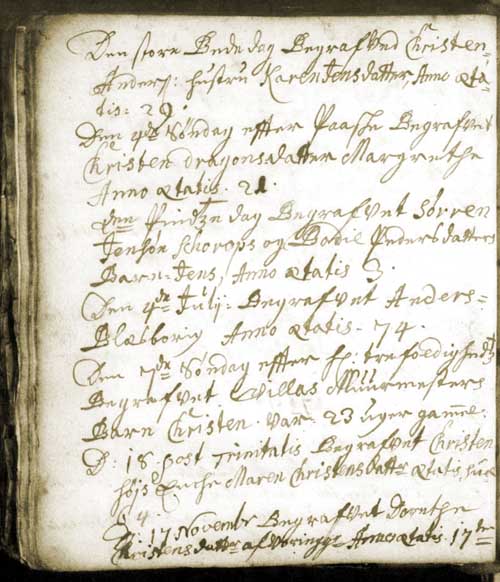 Den store Bede dag Begrafved Christen
Anders: hustru Karen Jensdatter, Anno Æta-
tis: 29.
Den 4de Søndag effter Paaske Begrafvet
Christen dragons datter Margrethe
Anno Ætatis. 21.
den Pindtze dag Begrafvet Sørren
Jensøn Schoraps og Bodil Pedersdatters
Barn Jens, Anno Ætatis 3.
Den 4de Julij: Begrafvet Anders
Blæsborg Anno Ætatis. 74.
Den 7de Søndag effter h: trefoldighed
Begrafvet Villas Muurmesters
Barn Christen. var 23 uger gamel:
D: 18 post Trinitatis Begrafvet Christen
Høys Enche Maren Christensdatter Ætatis suæ
4.
D: 17 Novembr Begrafvet Dorothe
Christensdatter af Anno Ætatis 17